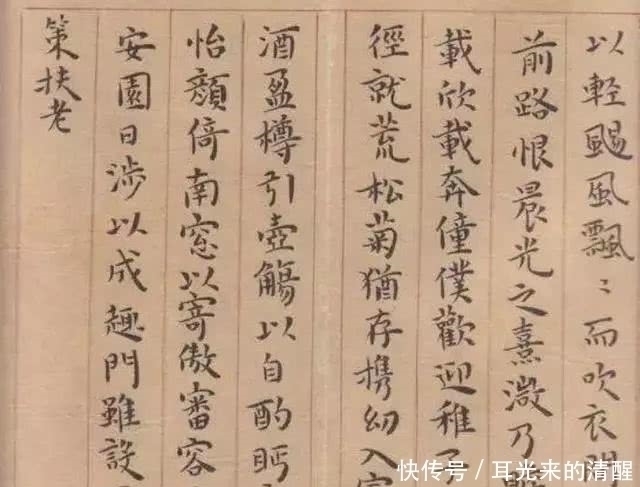 以輕颺風飄〻而吹衣問
前路恨晨光之熹微乃
載欣載奔僮僕歡迎稚子
徑就荒松菊猶存攜幼入室
酒盈樽引壺觴以自酌眄
怡顏倚南窓以寄傲審容
安園日涉以成趣門雖設
策扶老
快传号/耳光来的清醒